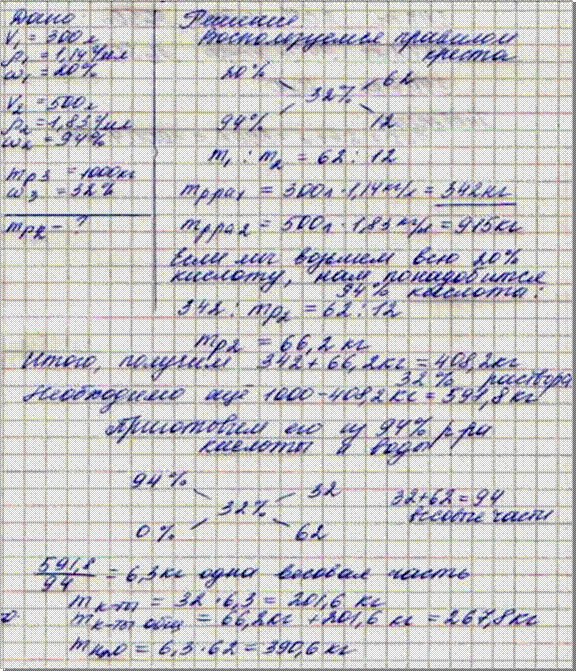 Дано
V₁ = 300 л
ρ₁ = 1,14 г/мл
ω₁ = 20%
V₂ = 500 л
ρ₂ = 1,83 г/мл
ω₂ = 94%
mр3 = 1000 кг
ω₃ = 32%
mр2 - ?
Решение
Воспользуемся правилом
креста
20% 62
32%
94% 12
m₁ : m₂ = 62 : 12
mр-ра1 = 300л · 1,14 кг/л = 342 кг
mр-ра2 = 500л · 1,83 кг/л = 915 кг
Если мы возьмем всю 20%
кислоту, нам понадобится
94% кислота:
342 : mр2 = 62 : 12
mр2 = 66,2 кг
Итого, получим 342 + 66,2 кг = 408,2 кг
32% раствора
Необходимо ещё 1000 - 408,2 кг = 591,8 кг
Приготовим его из 94% р-ра
кислоты и воды
94% 32
32%
0% 62
32 + 62 = 94
весовые части
591,8
94
= 6,3 кг одна весовая часть
mк-ты = 32 · 6,3 = 201,6 кг
mк-ты общ = 66,2 кг + 201,6 кг = 267,8 кг
mH₂O = 6,3 · 62 = 390,6 кг